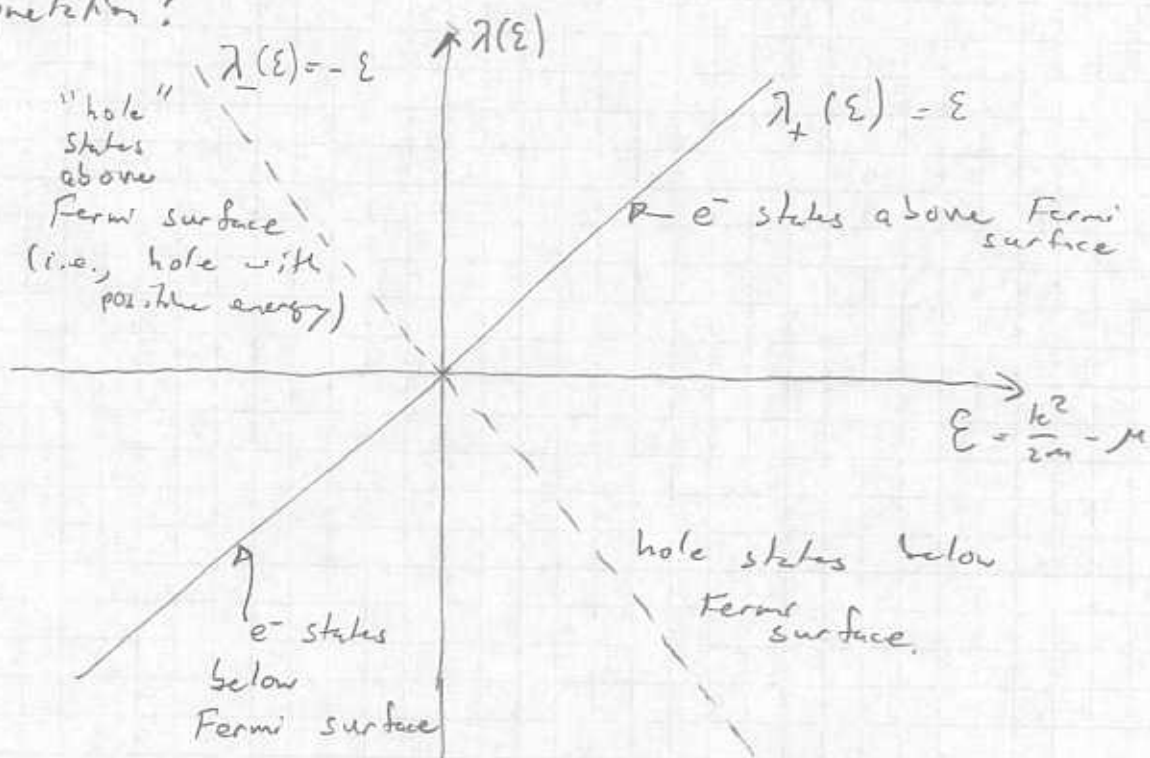 λ_(ε) = - ε
λ(ε)
"hole"
states
above
Fermi surface
(i.e., hole with
positive energy)
λ₊(ε) = ε
e⁻ states above Fermi
surface
ε = k²/2m - μ
hole states below
Fermi
surface.
e⁻ states
below
Fermi surface